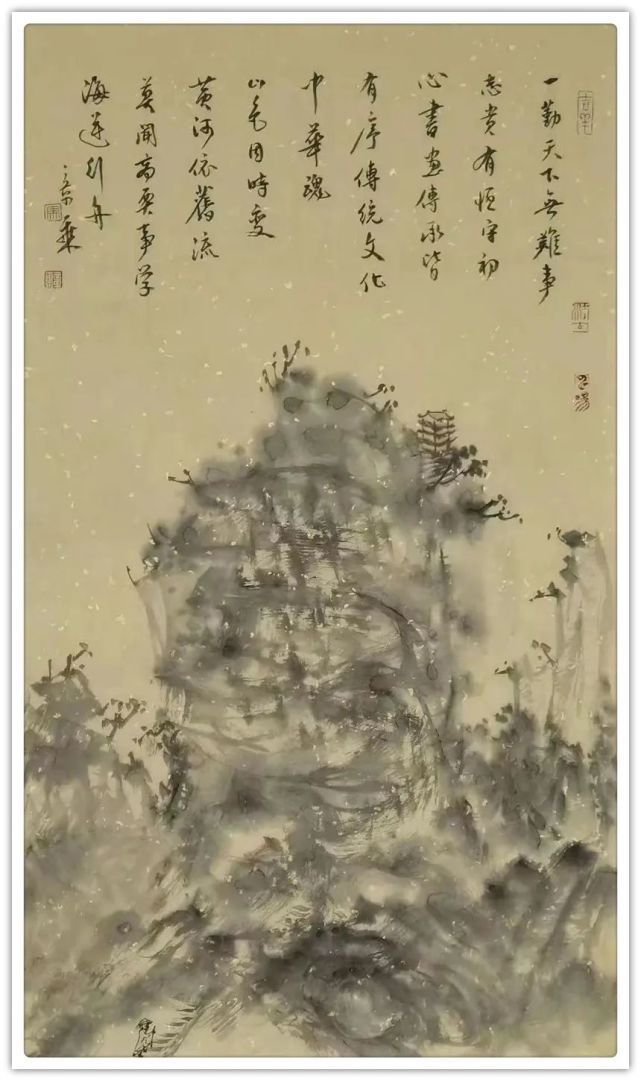 一勤天下無難事
志贵有恒守初
心書畫傳承皆
有序傳統文化
中華魂
山色因時变
黄河依舊流
莫闻高奥事学
海逆行舟